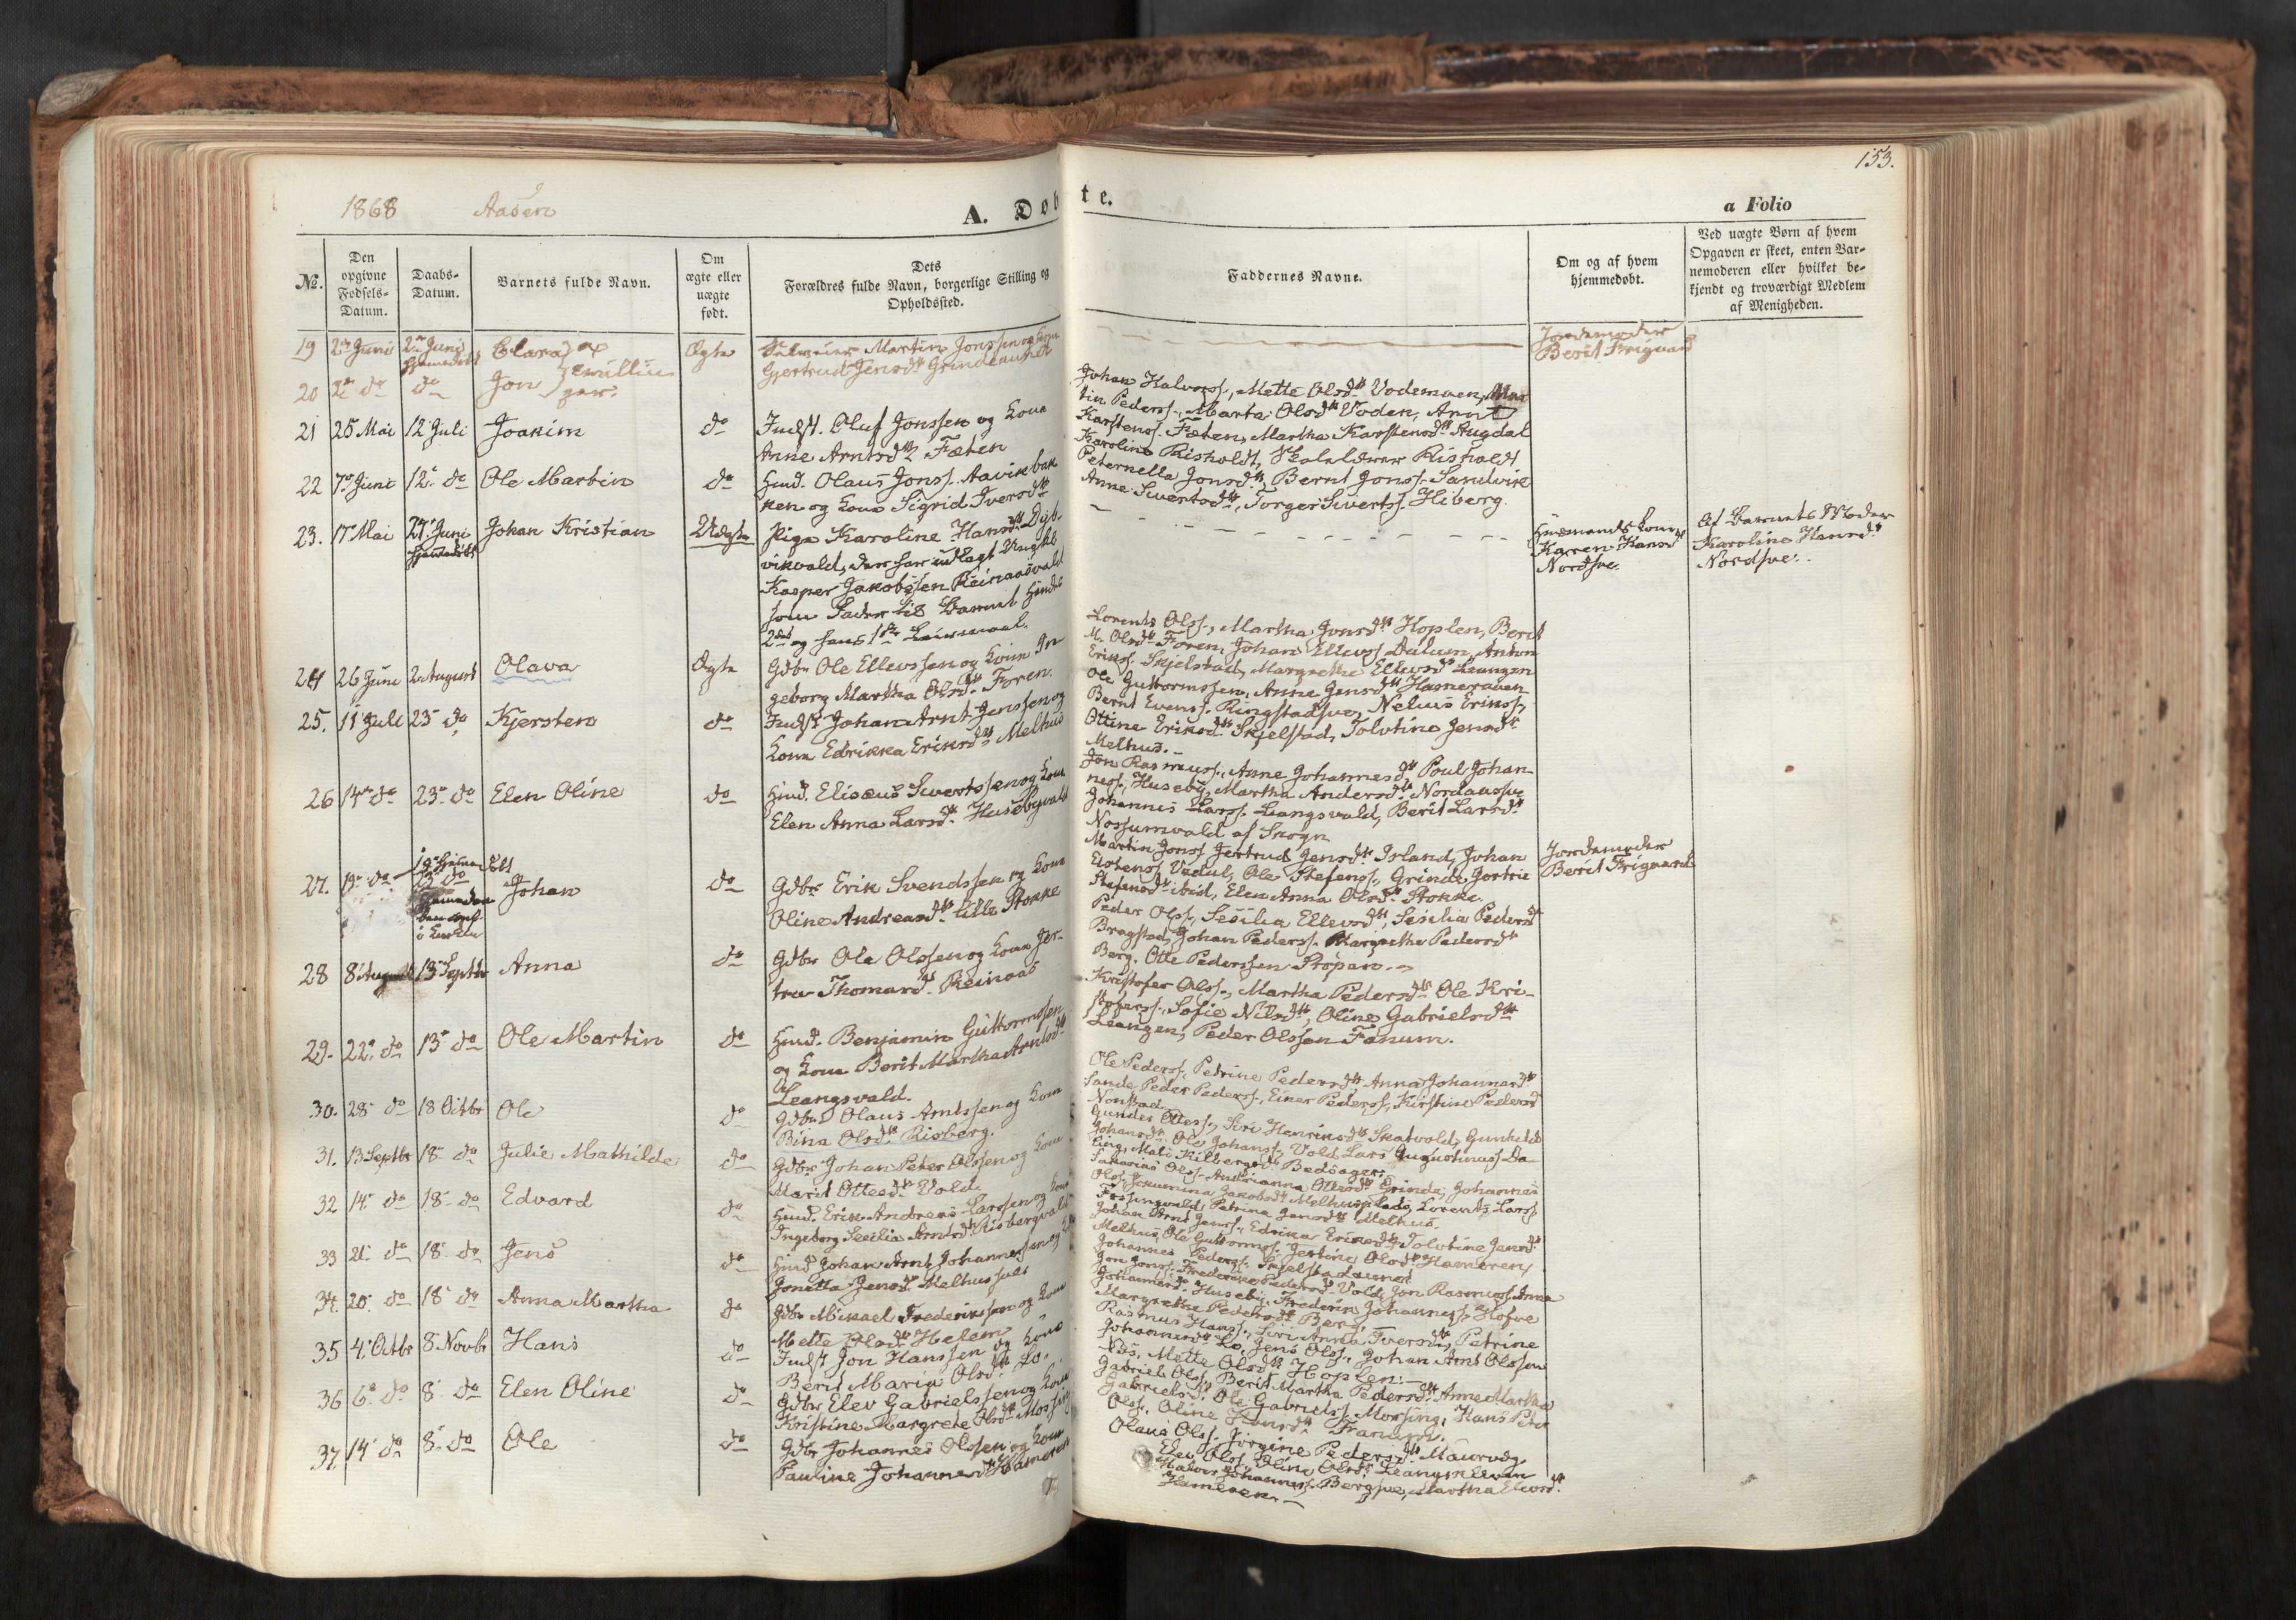 153.
1868 Aasen
A. Døbte.
a Folio
№.
Den opgivne Fødsels-Datum.
Daabs-Datum.
Barnets fulde Navn.
Om ægte eller uægte født.
Dets Forældres fulde Navn, borgerlige Stilling og Opholdssted.
Faddernes Navne.
Om og af hvem hjemmedøbt.
Ved uægte Børn af hvem Opgaven er skeet, enten Barnemoderen eller hvilket bekjendt og troværdigt Medlem af Menigheden.
19 2den Juni 2den Juni hjemmedøbt Clara Ægte
Martin Jonssen og Kone
Gjertrud Jensdtr
Jordemoder
Berit Trigvard
20 2den do do Jon
21 25 Mai 12 Juli Joakim do
Indst. Oluf Jonssen og Kone
Anne Arntsdtr Fæten
Johan Halvorss., Mette Olsdtr Vodemoen, Mar
tin Pederss., Marta Olsdtr Voden, Arnt
Karstenss. Fæten, Martha Karstensdtr Augdal
22 7de Juni 12te do Ole Martin do
Husd. Olaus Jonss. Aavikbak
ken og Kone Sigrid Iversdtr
Karoline Risholdt, Risholdt
Peternella Jonsdtr, Bernt Jonss. Sandvik
Anne Sivertsdtr, Torger Sivertss. Hiberg
23. 17 Mai 27 Juni hjemmedøbt Johan Kristian Uægte
Pige Karoline Hansdtr Dyb-
vikvald, der har udlagt Ungkl
Kasper Jakobssen Reinaasvald
som Fader til Barnet hendes
2det og hans 1ste Leiermaal.
Husmands Kone
Karen Hansdtr
Nordsve.
Af Barnets Moder
Karoline Hansdtr
Nordsve.
24 26 Juni 2 August Olava Ægte
Gdbr Ole Ellevssen og Kone In
geborg Martha Olsdtr Foren.
Lorents Olss., Martha Jonsdtr Hoplen, Berit
M. Olsdtr Foren, Johan Ellevss. Dalum, Anton
Erikss. Skjelstad, Margrethe Ellevsdtr Leangen
25. 11 Juli 23 do Kjersten do
Indst Johan Arnt Jenssen og
Kone Edrikka Eriksdtr Melhus
Ole Guttormssen, Anne Jensdtr Hameraaen
Bernt Evenss. Ringstadsve, Nelius Erikss.
Ottine Eriksdtr Skjelstad, Tolvtine Jensdtr
Melhus.
26 14de do 23de do Elen Oline do
Husd. Elisæus Sivertssen og Kone
Elen Anna Larsdtr Husebyvald
Jon Rasmuss., Anne Johannesdtr Poul Johan-
ness. Huseby, Martha Andersdtr Nordaassve
Johannes Larss. Leangsvald, Berit Larsdtr
Nossumvald af Skogn
27. 19de do Johan do
Gdbr Erik Svendssen og Kone
Oline Andreasdtr lille Stokke
Martin Jonss Gjertrud Jensdtr Island, Johan
Elotenss. Vædul, Ole Stefenss. Grinde, Gortrie
Stefensdtr ibid, Elen Anna Olsdtr Stokke.
Jordemoder
Berit Trigvard
28 8 August 13 Septbr Anna do
Gdbr Ole Olssen og Kone Jer-
tru Thomasdtr Reinaas
Peder Olss., Sesilia Ellevsdtr, Sesilia Pedersdtr
Bragstad, Johan Pederss. Margrethe Pedersdtr
Berg. Otte Pederssen Stopan.
29. 22de do 13 do Ole Martin do
Husd. Benjamin Guttormssen
og Kone Berit Martha Arntsdtr
Leangsvald.
Kristofer Olss., Martha Pedersdtr Ole Kri-
stoferss. Sofie Nilsdtr, Oline Gabrielsdtr
Leangen, Peder Olssen Fanum.
30. 28 do 18 Octbr Ole do
Gdbr Olaus Arntssen og Kone
Bina Olsdtr Risberg.
Ole Pederss. Petrine Pedersdtr Anna Johannesdtr
Sande Peder Pederss., Einer Pederss, Kirstine Pedersd
Nonstad.
31. 13 Septbr 18 do Julie Mathilde do
Gdbr Johan Peter Olssen og Kone
Marit Ottesdtr Vold.
Gunder Ottess., Siri Henriksdtr Skatvold, Gunhild
Johansdtr Ole Johanss. Vold, Lars Augustinuss. Da-
32 14 do 18 do Edvard do
Husd. Erik Andreas Larssen og Kone
Ingeborg Sesilia Arntsdtr Risbergvald
Sakarias Olss. Andrianna Ottesdtr Grinde, Johannes
Olss. Jokumina Jakobsdtr Melhusplads, Lorents Larss
Fossingvald, Petrina Jensdtr Melhus.
33 21 do 18 do Jens do
Husd Johan Arnt Johannessen og K
Jonetta Jensdtr Melhussve
Johan Arnt Jenss., Edrika Eriksdtr Tolvtine Jensdtr
Melhus, Ole Guttormss. Jertine Olsdtr Hameren,
Johannes Pederss. Skjelstad
34. 20 do 18 do Anna Martha do
Gdbr Mikael Frederikssen og Kone
Mette Olsdtr Helem
Jon Jonss. Frederikke Pedersdtr Vold, Jon Rasmuss. Anna
Johannesdtr Huseby, Frederik Johanness. Hofve
Margrethe Pedersdtr Berg.
35 4 Octbr 8 Novbr Hans do
Indst Jon Hanssen og Kone
Berit Maria Olsdtr Lo.
Rasmus Hanss., Siri Anna Iversdtr, Petrine
Johannesdtr Lo, Jens Olss., Johan Arnt Olssen
Vos, Mette Olsdtr Hoplen.
36 6 do 8 do Elen Oline do
Gdbr Elev Gabrielssen og Kone
Kristine Margrete Olsdtr Mossing
Gabriel Olss, Berit Martha Pedersdtr Anne Martha
Gabrielsdtr Ole Gabrielss. Morsing, Hans Peter
Olss. Oline Fanum.
37. 14 do 8 do Ole do
Gdbr Johannes Olssen og Kone
Pauline Johannesdtr Hameren
Olaus Olss. Jorgine Pedersdtr Maurveg
Elev Olss. Oline Olsdtr
Halvor Johanness. Bergsve, Martha Elevsdtr
Hameren.